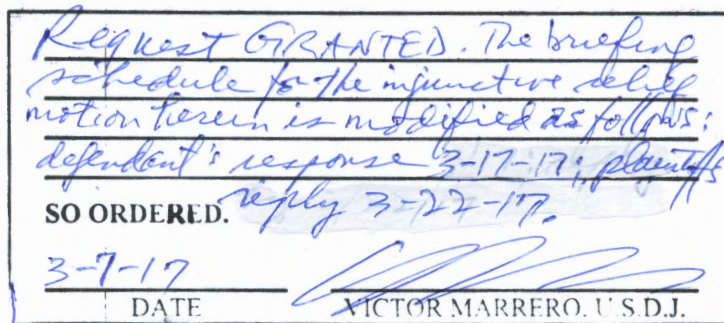 Request GRANTED. The briefing
schedule for the injunctive relief
motion herein is modified as follows:
defendant's response 3-17-17; plaintiffs
reply 3-22-17.
SO ORDERED.
3-7-17
DATE
VICTOR MARRERO, U.S.D.J.